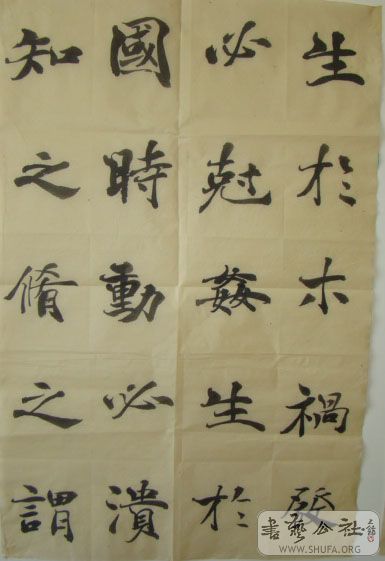 生於木禍發
必尅姦生於
國時動必潰
知之脩之謂
書藝公社
WWW.SHUFA.ORG